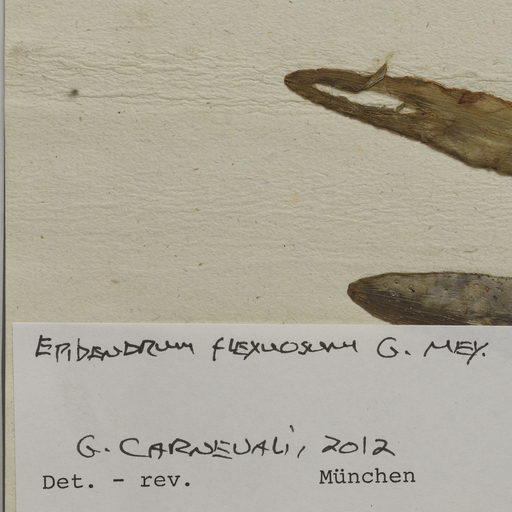 Epidendrum flexuosum G. Mey.
G. Carnevali, 2012
Det. - rev. München